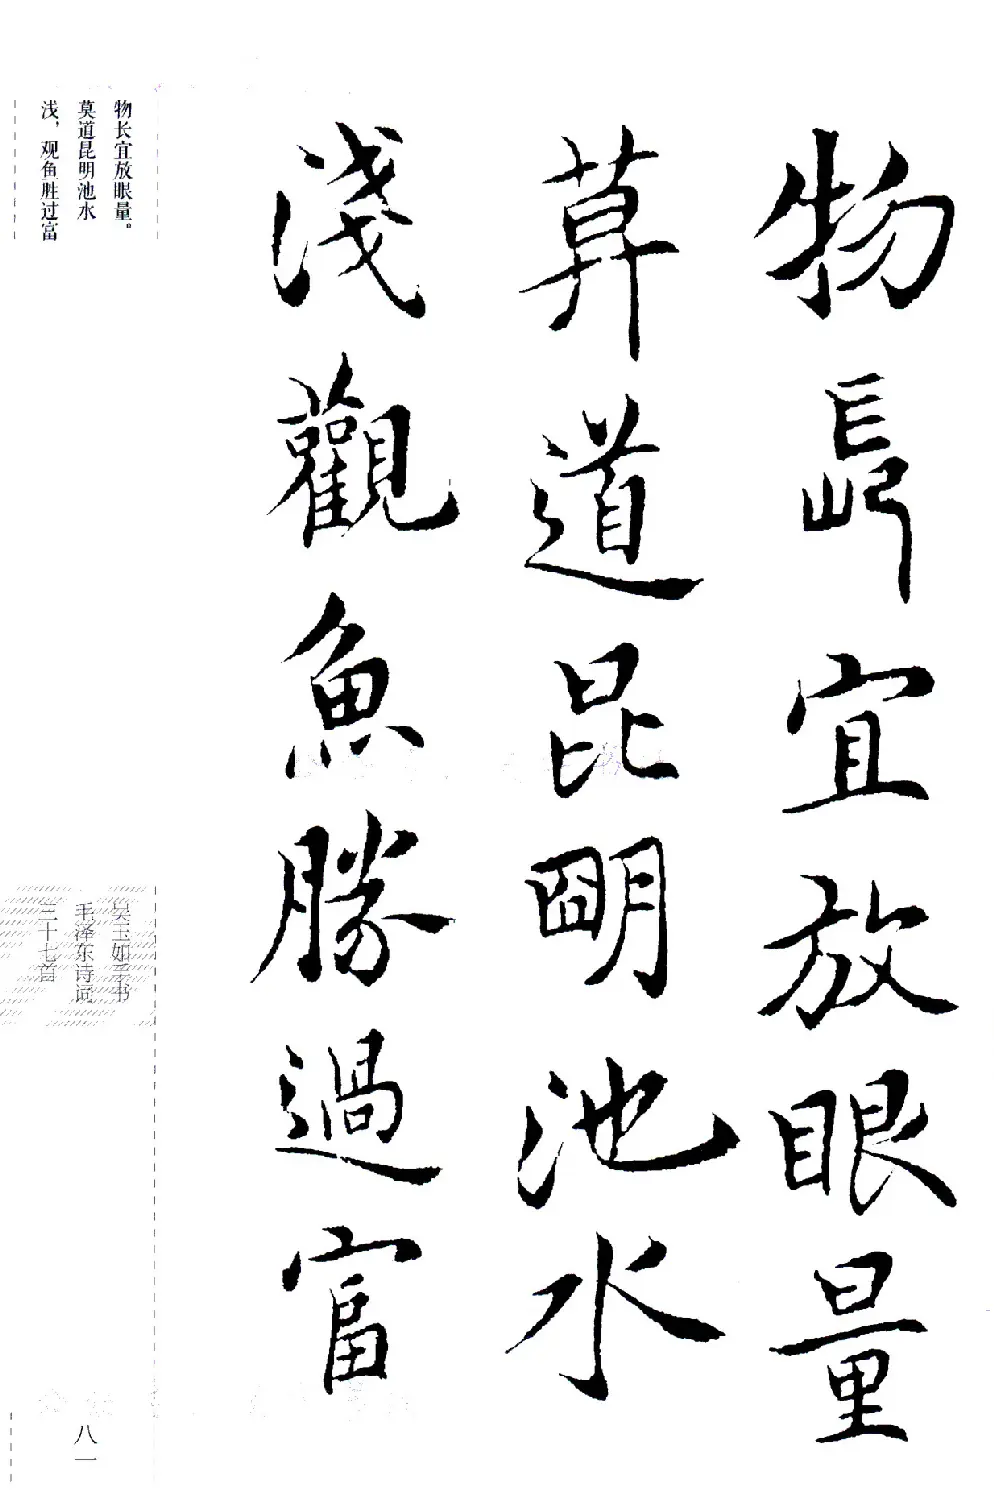 物長宜放眼量
莫道昆明池水
淺觀魚勝過富
物长宜放眼量。
莫道昆明池水
浅，观鱼胜过富
吴玉如手书
毛泽东诗词
三十七首
八一